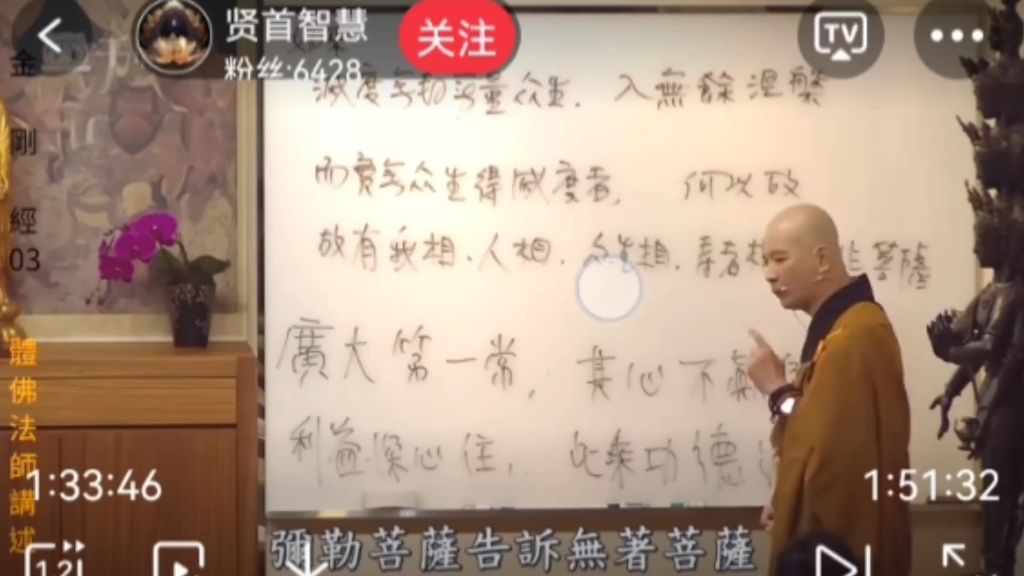 贤首智慧
关注
TV
粉丝:6428
金剛經03
體佛法師講述
滅度無數無量众生.入無餘涅槃
而實無众生得滅度者,何以故
故有我相.人相.众生相.壽者相 菩薩
廣大第一常,其心不
利益深心住,此乘功德
1:33:46
1:51:32
彌勒菩薩告訴無著菩薩